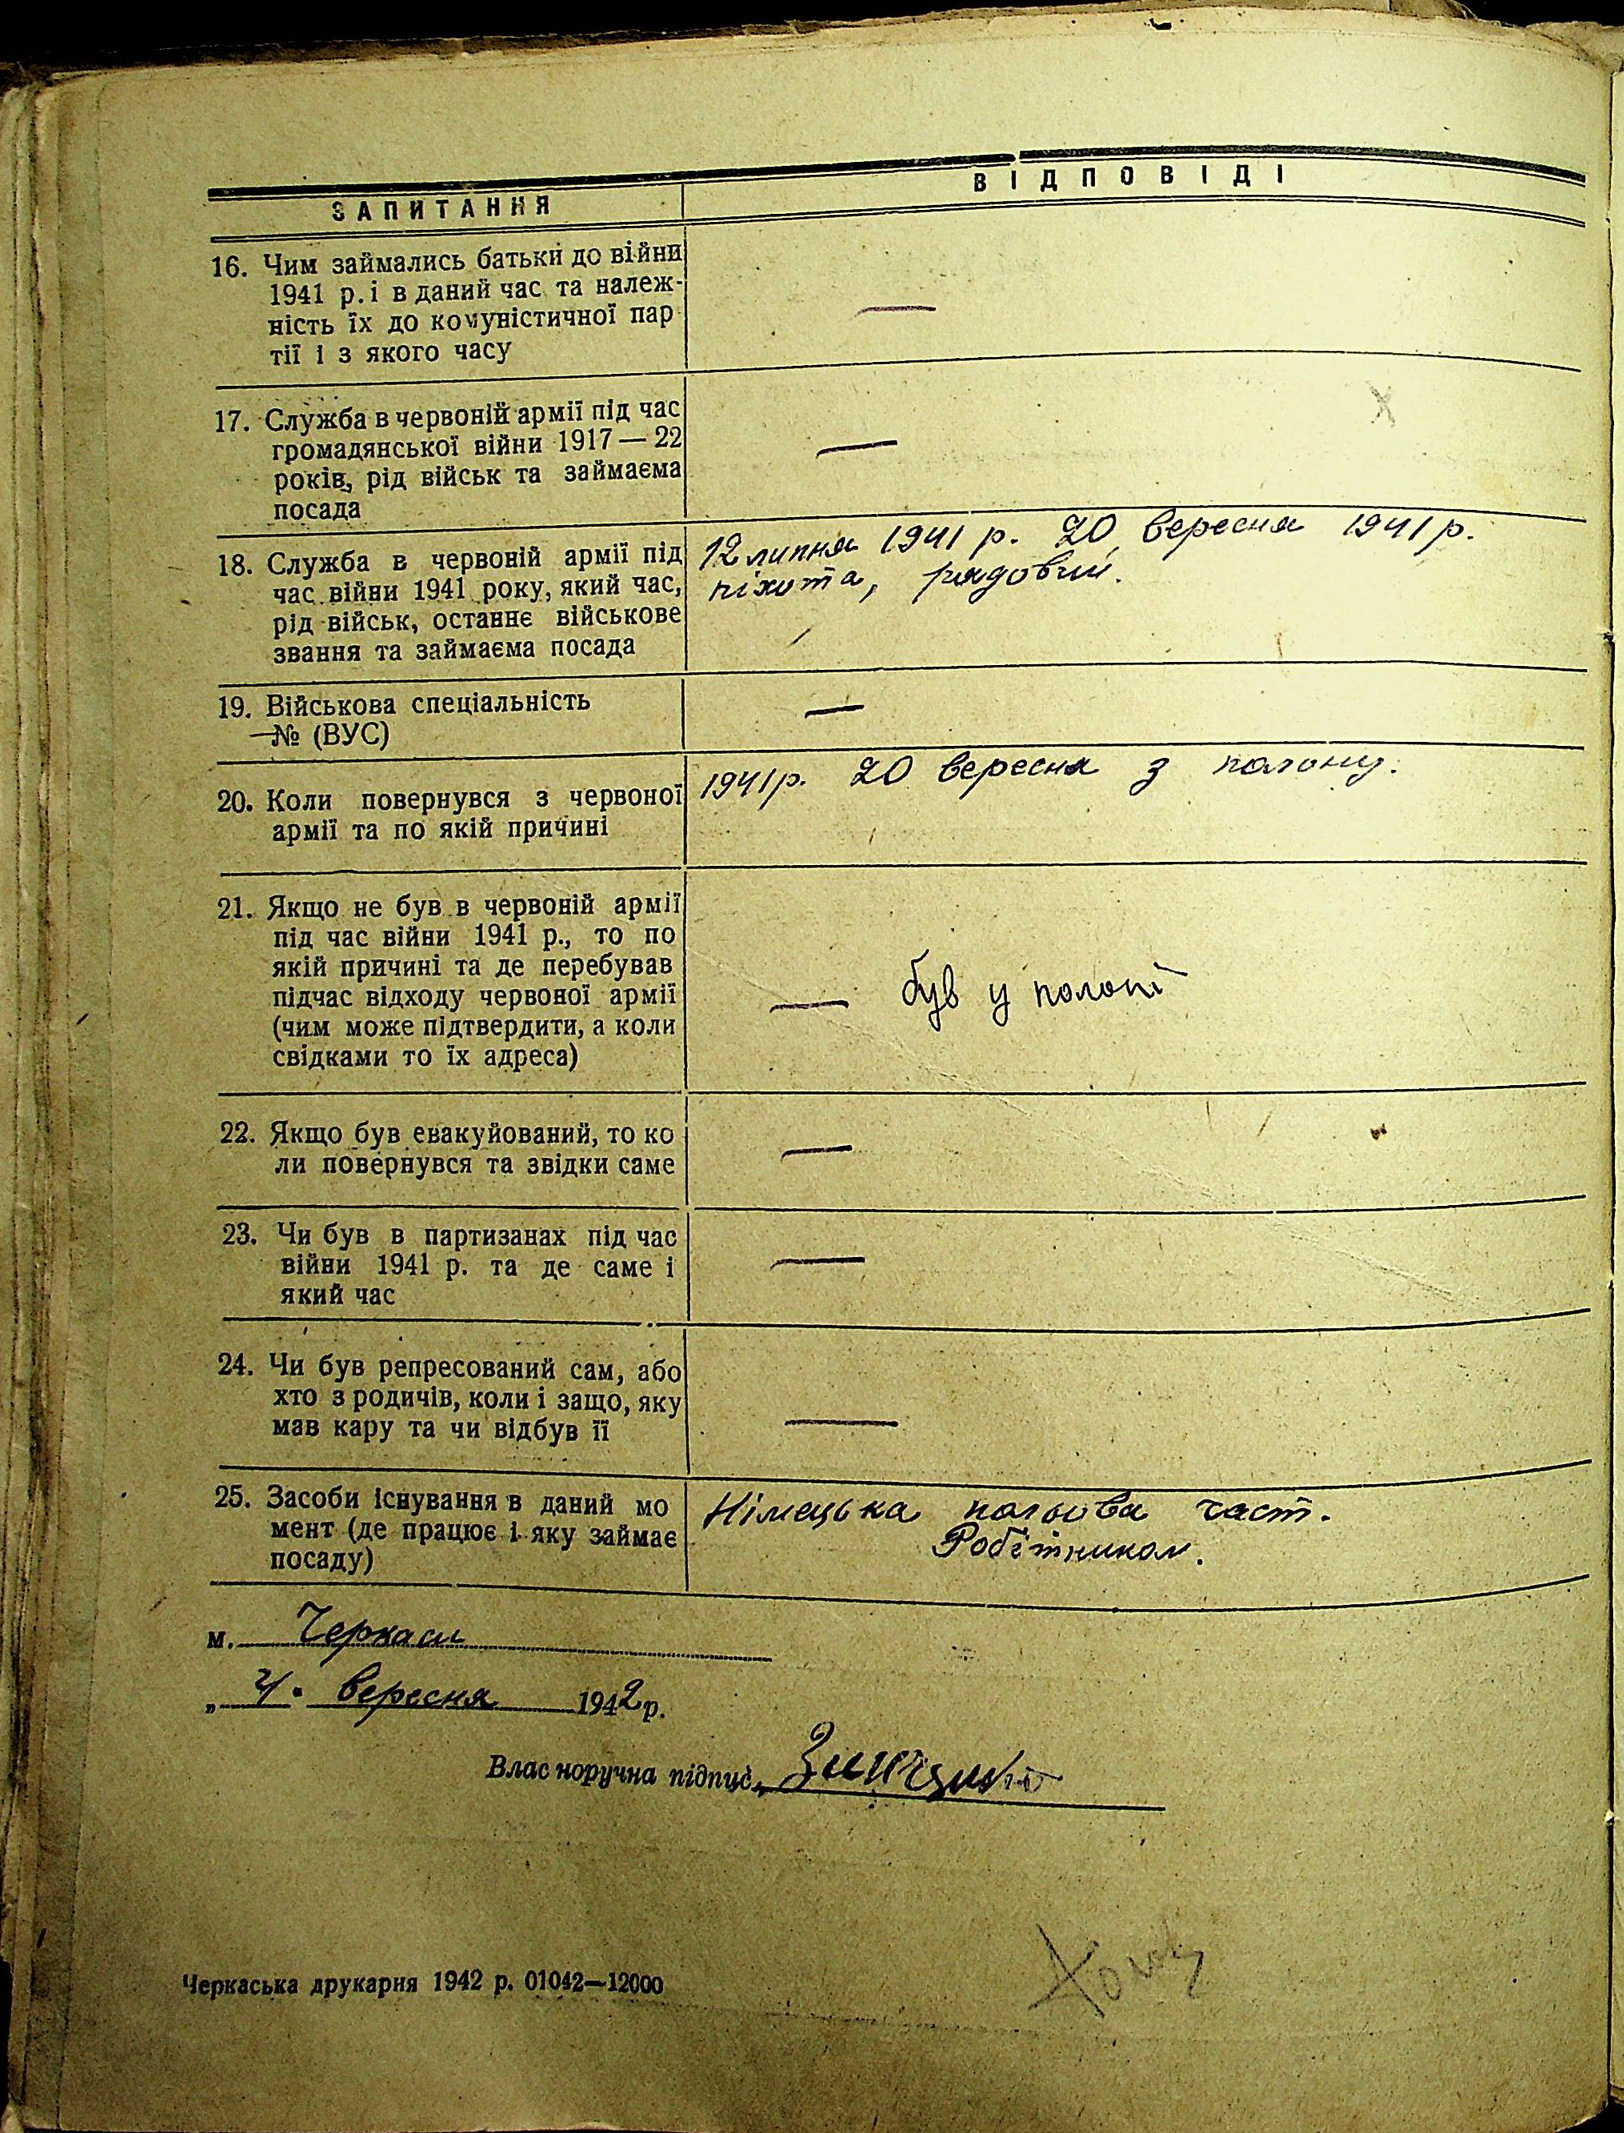 ЗАПИТАННЯ
ВІДПОВІДІ
16. Чим займались батьки до війни
1941 р. і в даний час та належ-
ність їх до комуністичної пар
тії і з якого часу
—
17. Служба в червоній армії під час
громадянської війни 1917—22
років, рід військ та займаєма
посада
—
18. Служба в червоній армії під
час війни 1941 року, який час,
рід військ, останнє військове
звання та займаєма посада
12 липня 1941 р. 20 вересня 1941 р.
піхота, рядовий.
19. Військова спеціальність
—№ (ВУС)
—
20. Коли повернувся з червоної
армії та по якій причині
1941 р. 20 вересня з полону.
21. Якщо не був в червоній армії
під час війни 1941 р., то по
якій причині та де перебував
підчас відходу червоної армії
(чим може підтвердити, а коли
свідками то їх адреса)
— був у полоні
22. Якщо був евакуйований, то ко
ли повернувся та звідки саме
—
23. Чи був в партизанах під час
війни 1941 р. та де саме і
який час
—
24. Чи був репресований сам, або
хто з родичів, коли і защо, яку
мав кару та чи відбув її
—
25. Засоби існування в даний мо
мент (де працює і яку займає
посаду)
Німецька польова част.
Робітником.
м. Черкаси
„ 4. вересня 1942 р.
Власноручна підпис
Черкаська друкарня 1942 р. 01042—12000